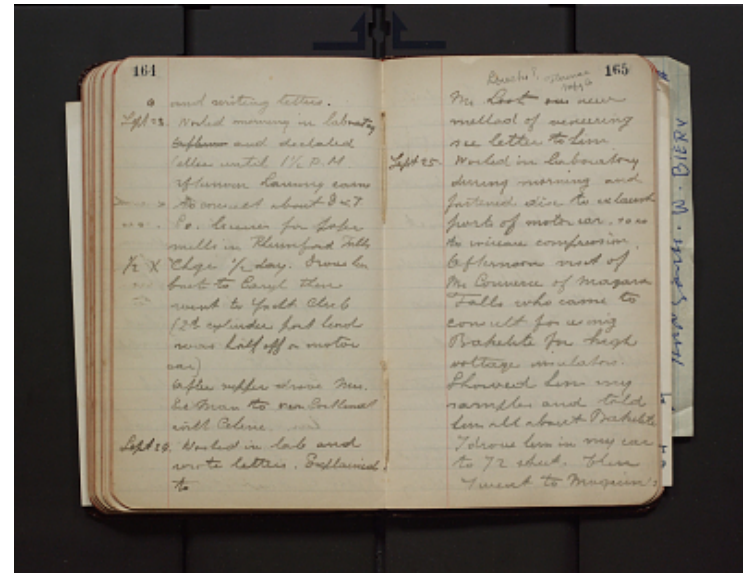 164
and writing letters.
Sept 23. Worked morning in laboratory
and dictated
letters until 1½ P.M.
Afternoon Lansing came
to consult about
Co. licenses for
mills in Rhumford Falls
½ X Chge ½ day. Drove him
back to Caryl then
went to Yacht Club
(2d cylinder port lead
was half off on motor
car)
After supper drove Mrs.
to van Cortlandt
with Celine.
Sept 24. Worked in lab and
wrote letters. Explained
to
165
Mr. our new
method of veneering
see letter to him
Sept 25. Worked in Laboratory
during morning and
fastened disc to exhaust
ports of motor car. so as
to increase compression.
Afternoon visit of
Mr Converse of Niagara
Falls who came to
consult for using
Bakelite for high
voltage insulators.
Showed him my
samples and told
him all about Bakelite
I drove him in my car
to 72 street. Then
I went to
W. BIERY